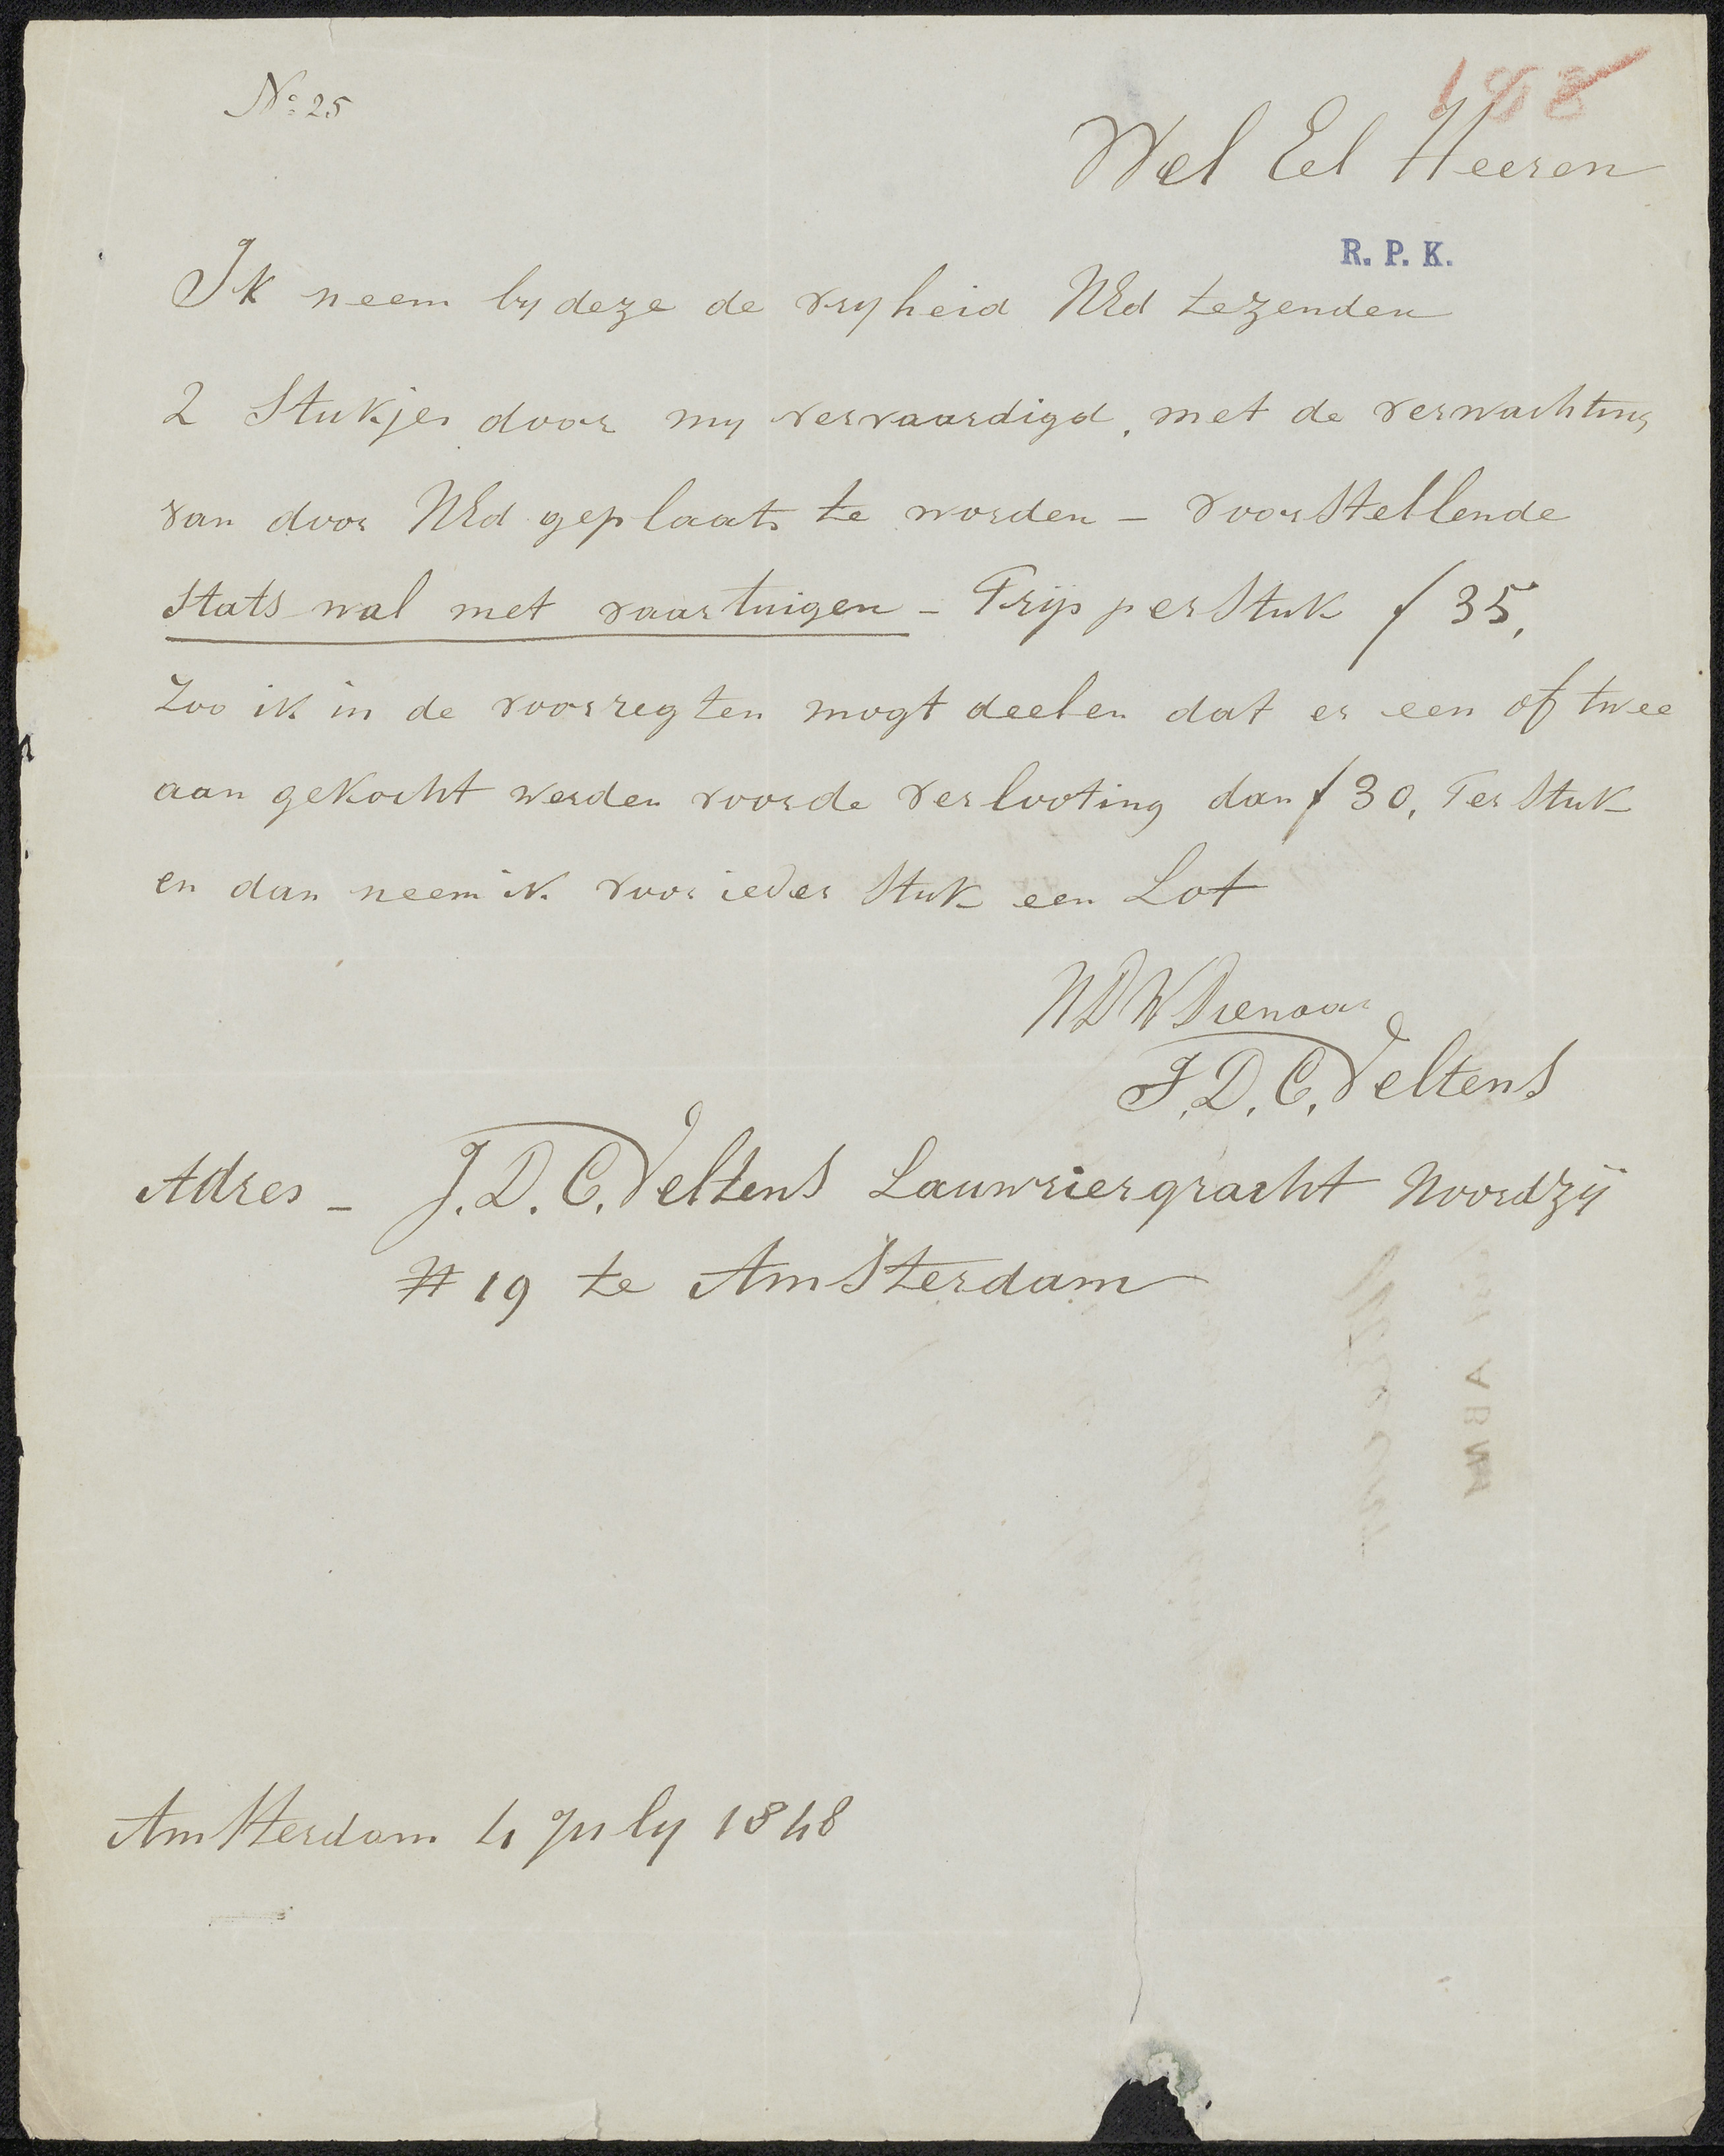 No 25
188
Wel Ed Heeren
R. P. K.
Ik neem by deze de vryheid WEd tezenden
2 Stukjes door my vervaardigd, met de verwachting
van door WEd geplaats te worden – voorstellende
Stats wal met vaartuigen – Prijs per Stuk f 35,
Zoo ik in de voorregten mogt deelen dat er een of twee
aan gekocht werden voorde verlooting dan f 30, Per Stuk
en dan neem ik voor ieder Stuk een Lot
UDW Dienaar
J. D. C. Veltens
Adres – J. D. C. Veltens Lauwriergracht Noordzij
# 19 te Amsterdam
Amsterdam 4 July 1848